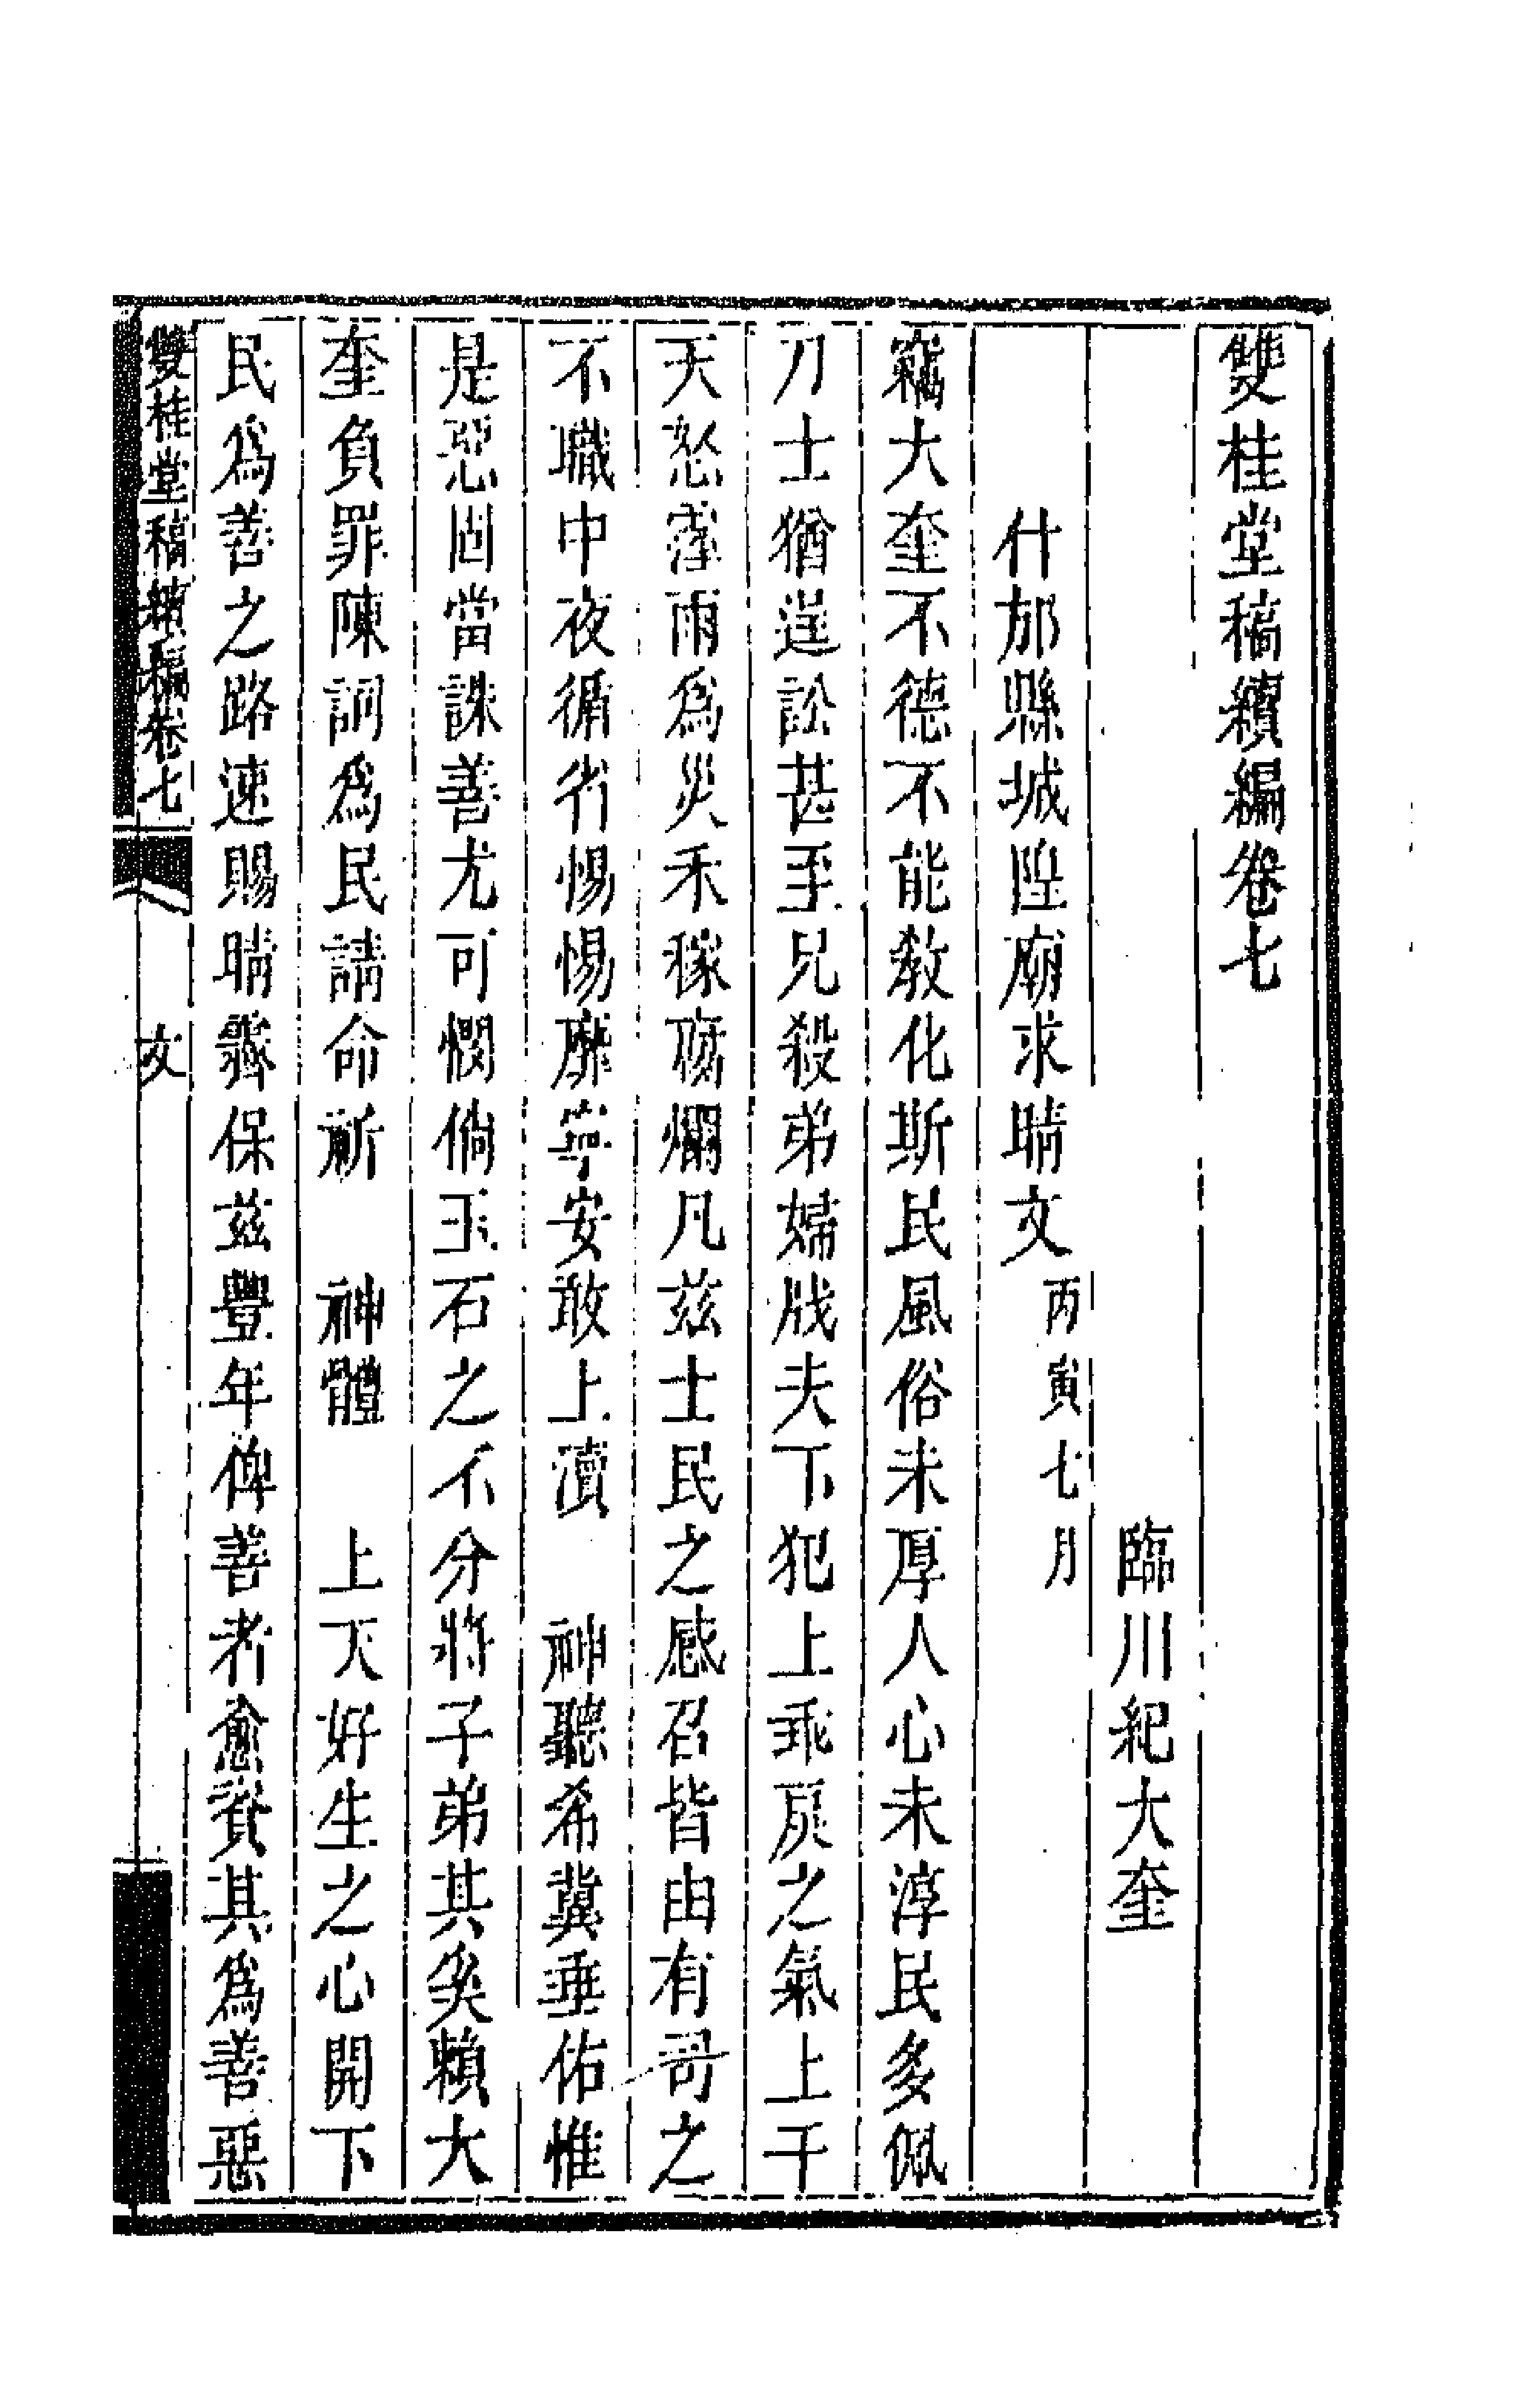 雙桂堂稿續編卷七
臨川紀大奎
什邡縣城隍廟求晴文丙寅七月
竊大奎不德不能教化斯民風俗未厚人心未淳民多佩
刀士猶逞訟甚至兄殺弟婦戕夫下犯上乖戾之氣上干
天怒霪雨為災禾稼腐爛凡茲士民之感召皆由有司之
不職中夜循省惕惕靡寧安敢上瀆 神聽希冀垂佑惟
是惡固當誅善尤可憫倘玉石之不分將子弟其奚賴大
奎負罪陳詞為民請命祈 神體 上天好生之心開下
民為善之路速賜晴霽保茲豐年俾善者愈資其為善惡
雙桂堂稿續編卷七
文